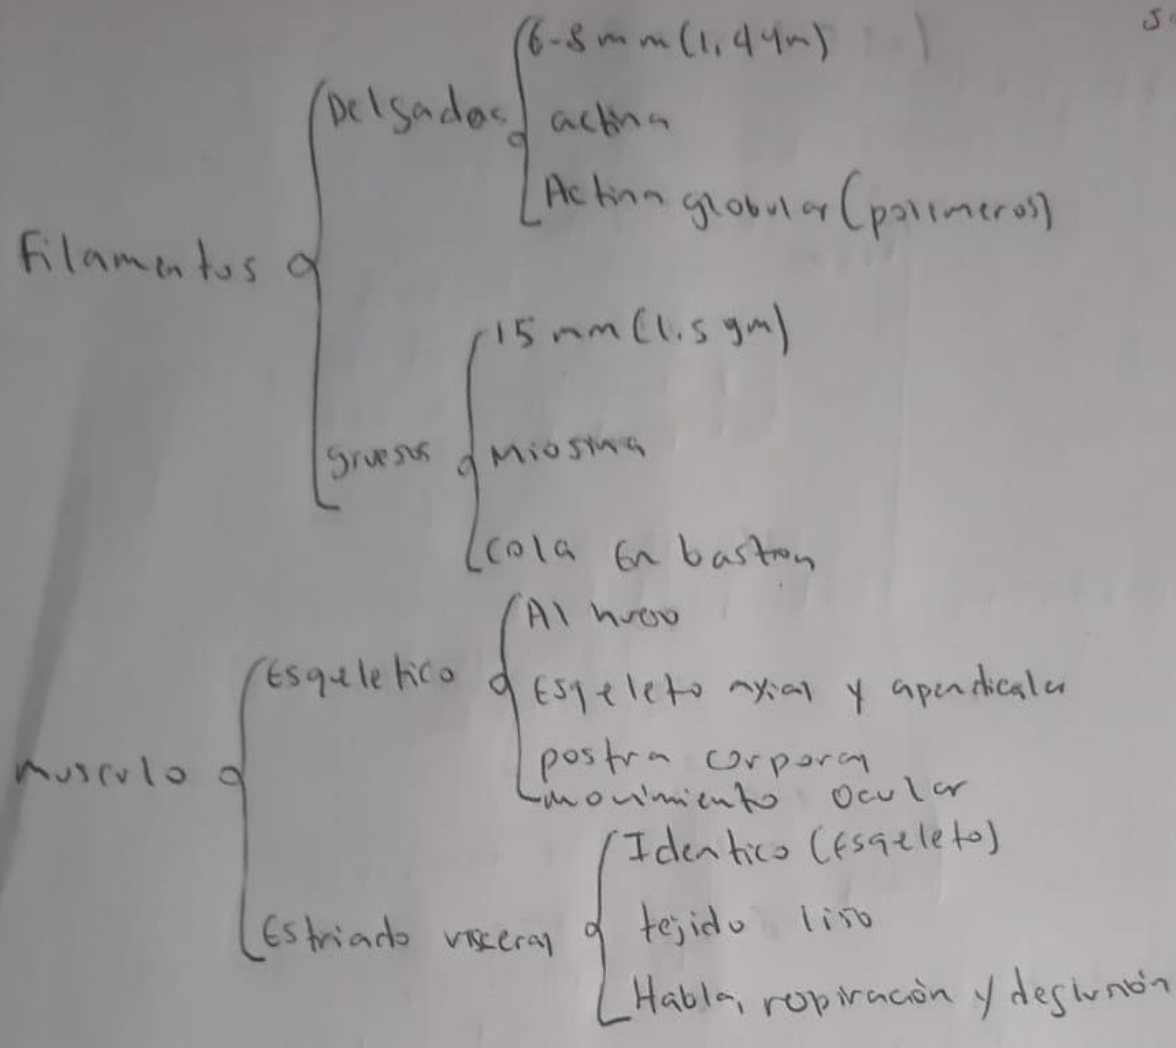 Filamentos
Delgados
6-8 mm (1.44m)
actina
Actina globular (polimeros)
gruesos
15 mm (1.5 ym)
Miosina
cola En baston
musculo
Esqueletico
Al hueso
Esqeleto axial y apendicular
postra corporal
movimiento ocular
Estriado visceral
Identico (Esqeleto)
tejido liso
Habla, respiración y deglusión